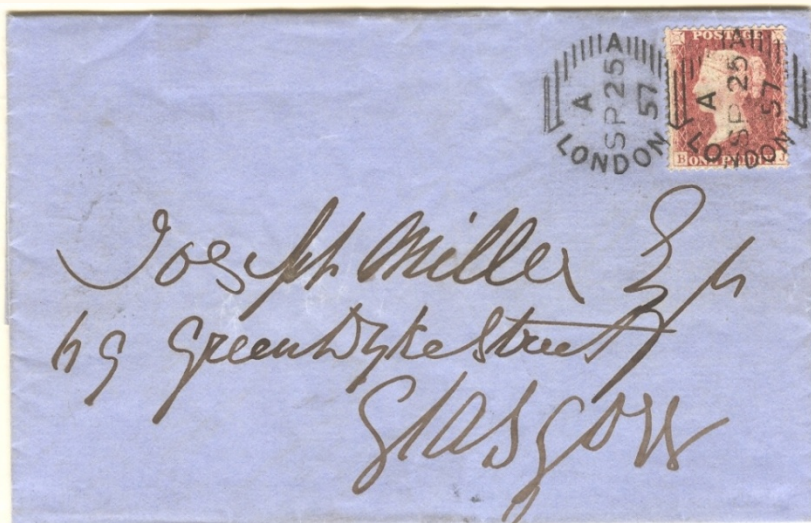 A
A
SP 25
57
LONDON
POSTAGE
A
A
SP 25
57
LONDON
B ONE PENNY J
Joseph Miller Esq
69 Green Dyke Street
Glasgow